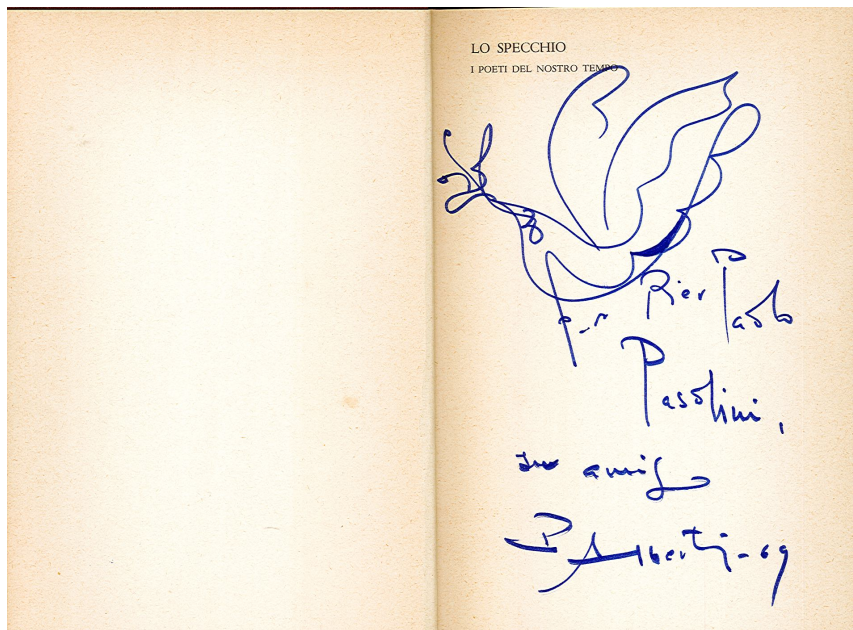 LO SPECCHIO
I POETI DEL NOSTRO TEMPO
Pier Paolo
Pasolini,
su amigo
R Alberti - 69